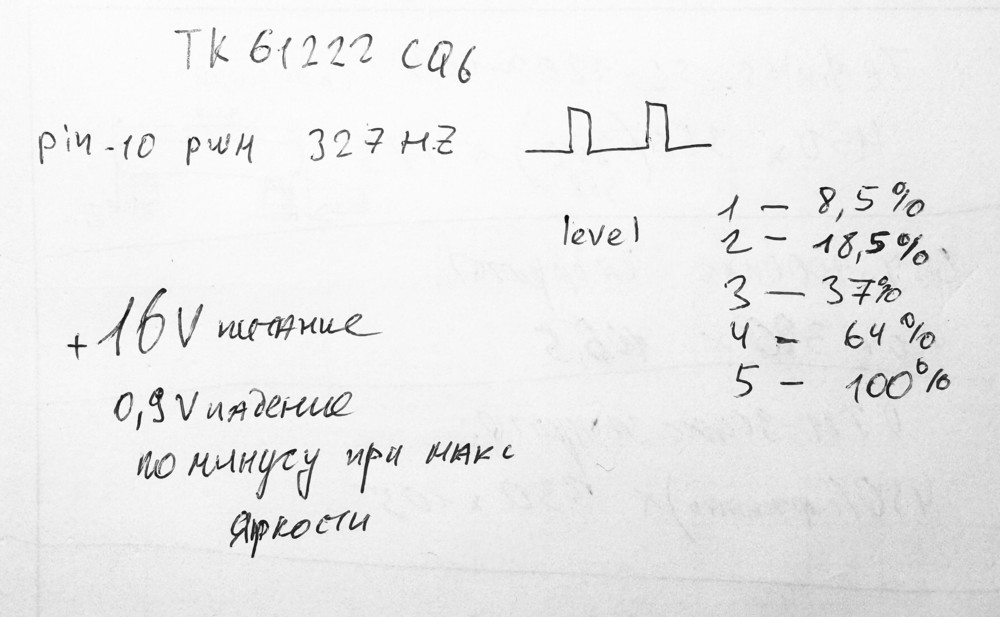 TK 61222 CQ6
pin-10 PWM 327 HZ
level
1 – 8,5%
2 – 18,5%
3 – 37%
4 – 64%
5 – 100%
+16V питание
0,9V падение
по минусу при макс
яркости